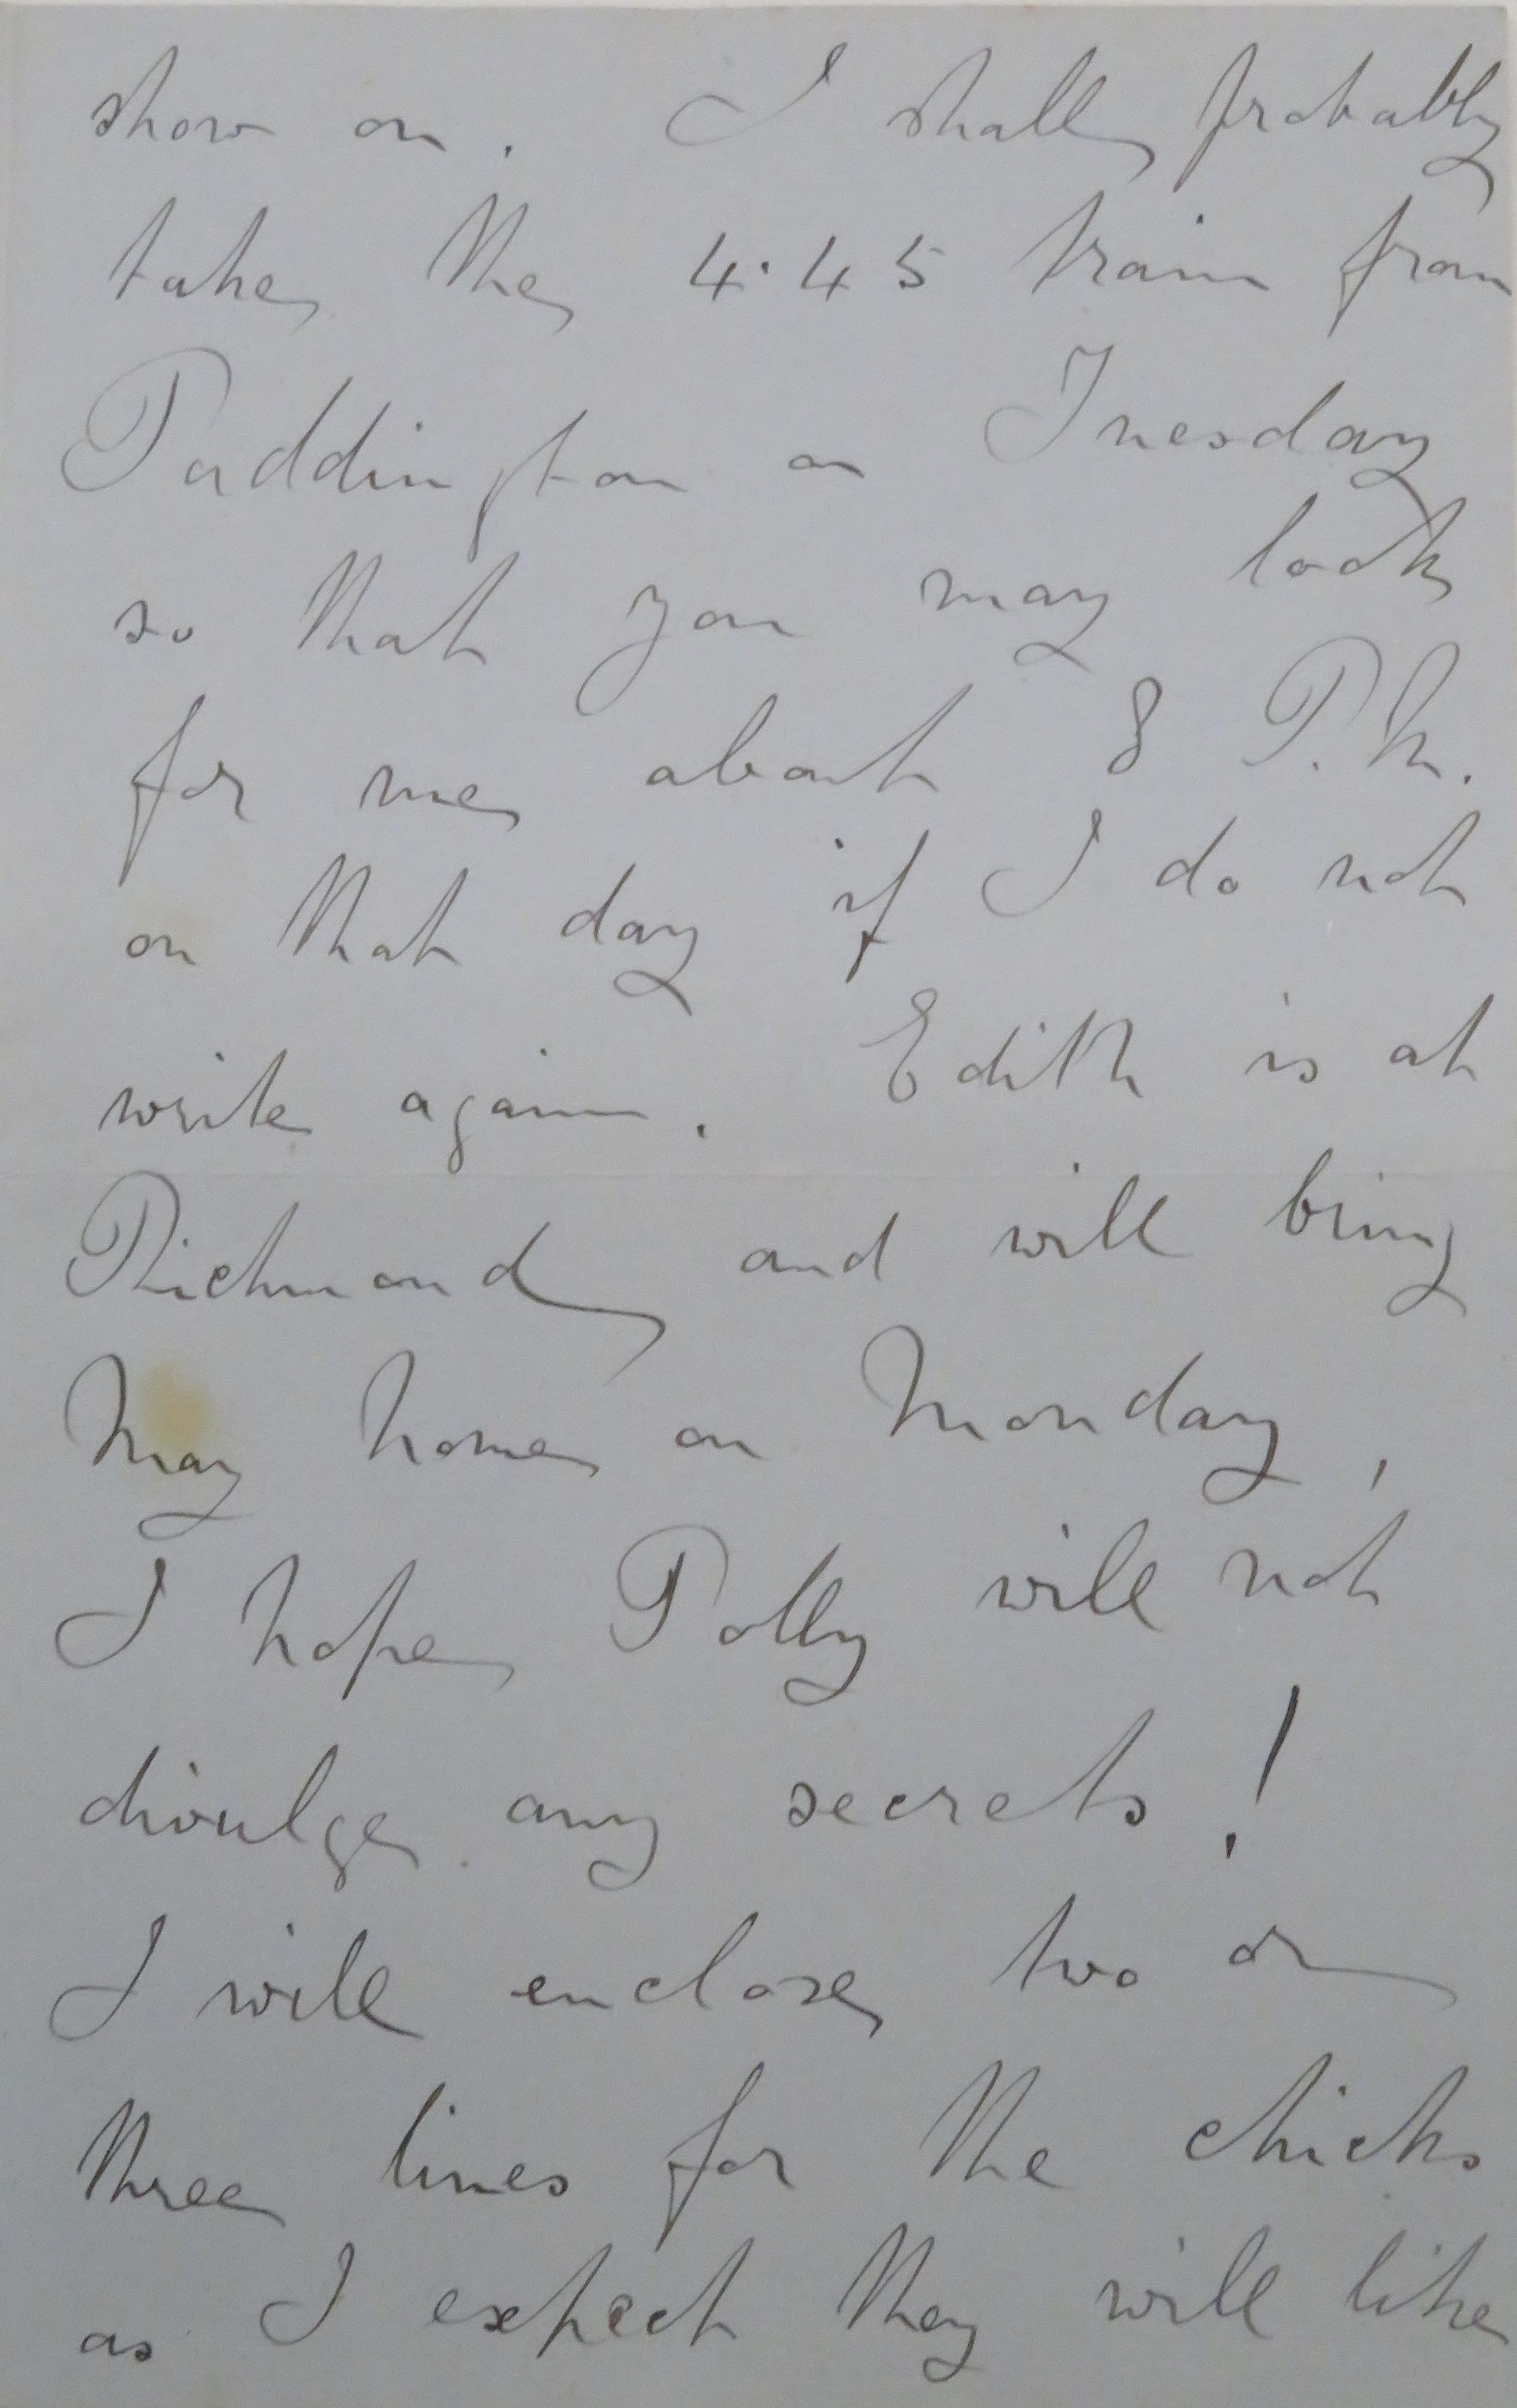 show on. I shall probably
take the 4.45 train from
Paddington on Tuesday
so that you may look
for me about 8 P.M.
on that day if I do not
write again. Edith is at
Richmond and will bring
May home on Monday,
I hope Polly will not
divulge any secrets!
I will enclose two or
three lines for the chicks
as I expect they will like